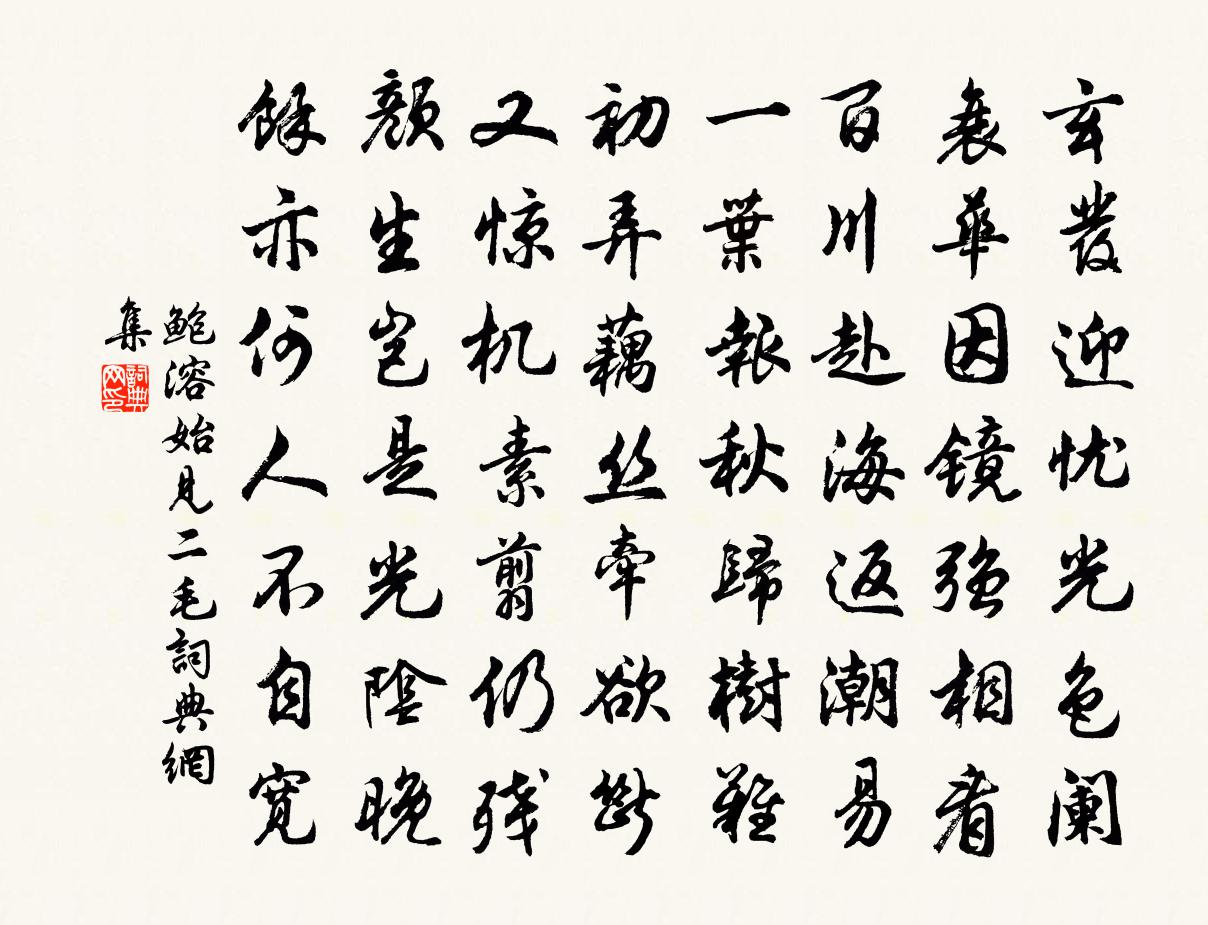 玄發迎忧光色阑
衰華因镜强相看
百川赴海返潮易
一葉報秋歸樹難
初弄藕丝牽欲斷
又惊机素剪仍残
颜生岂是光陰晚
餘亦何人不自寬
鲍溶始見二毛詞典網
集
詞典
网印